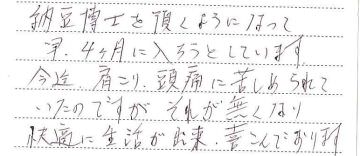 納豆博士を頂くようになって
早、4ヶ月に入ろうとしています
今迄、肩こり、頭痛に苦しめられて
いたのですが それが無くなり
快適に生活が出来、喜こんでおります